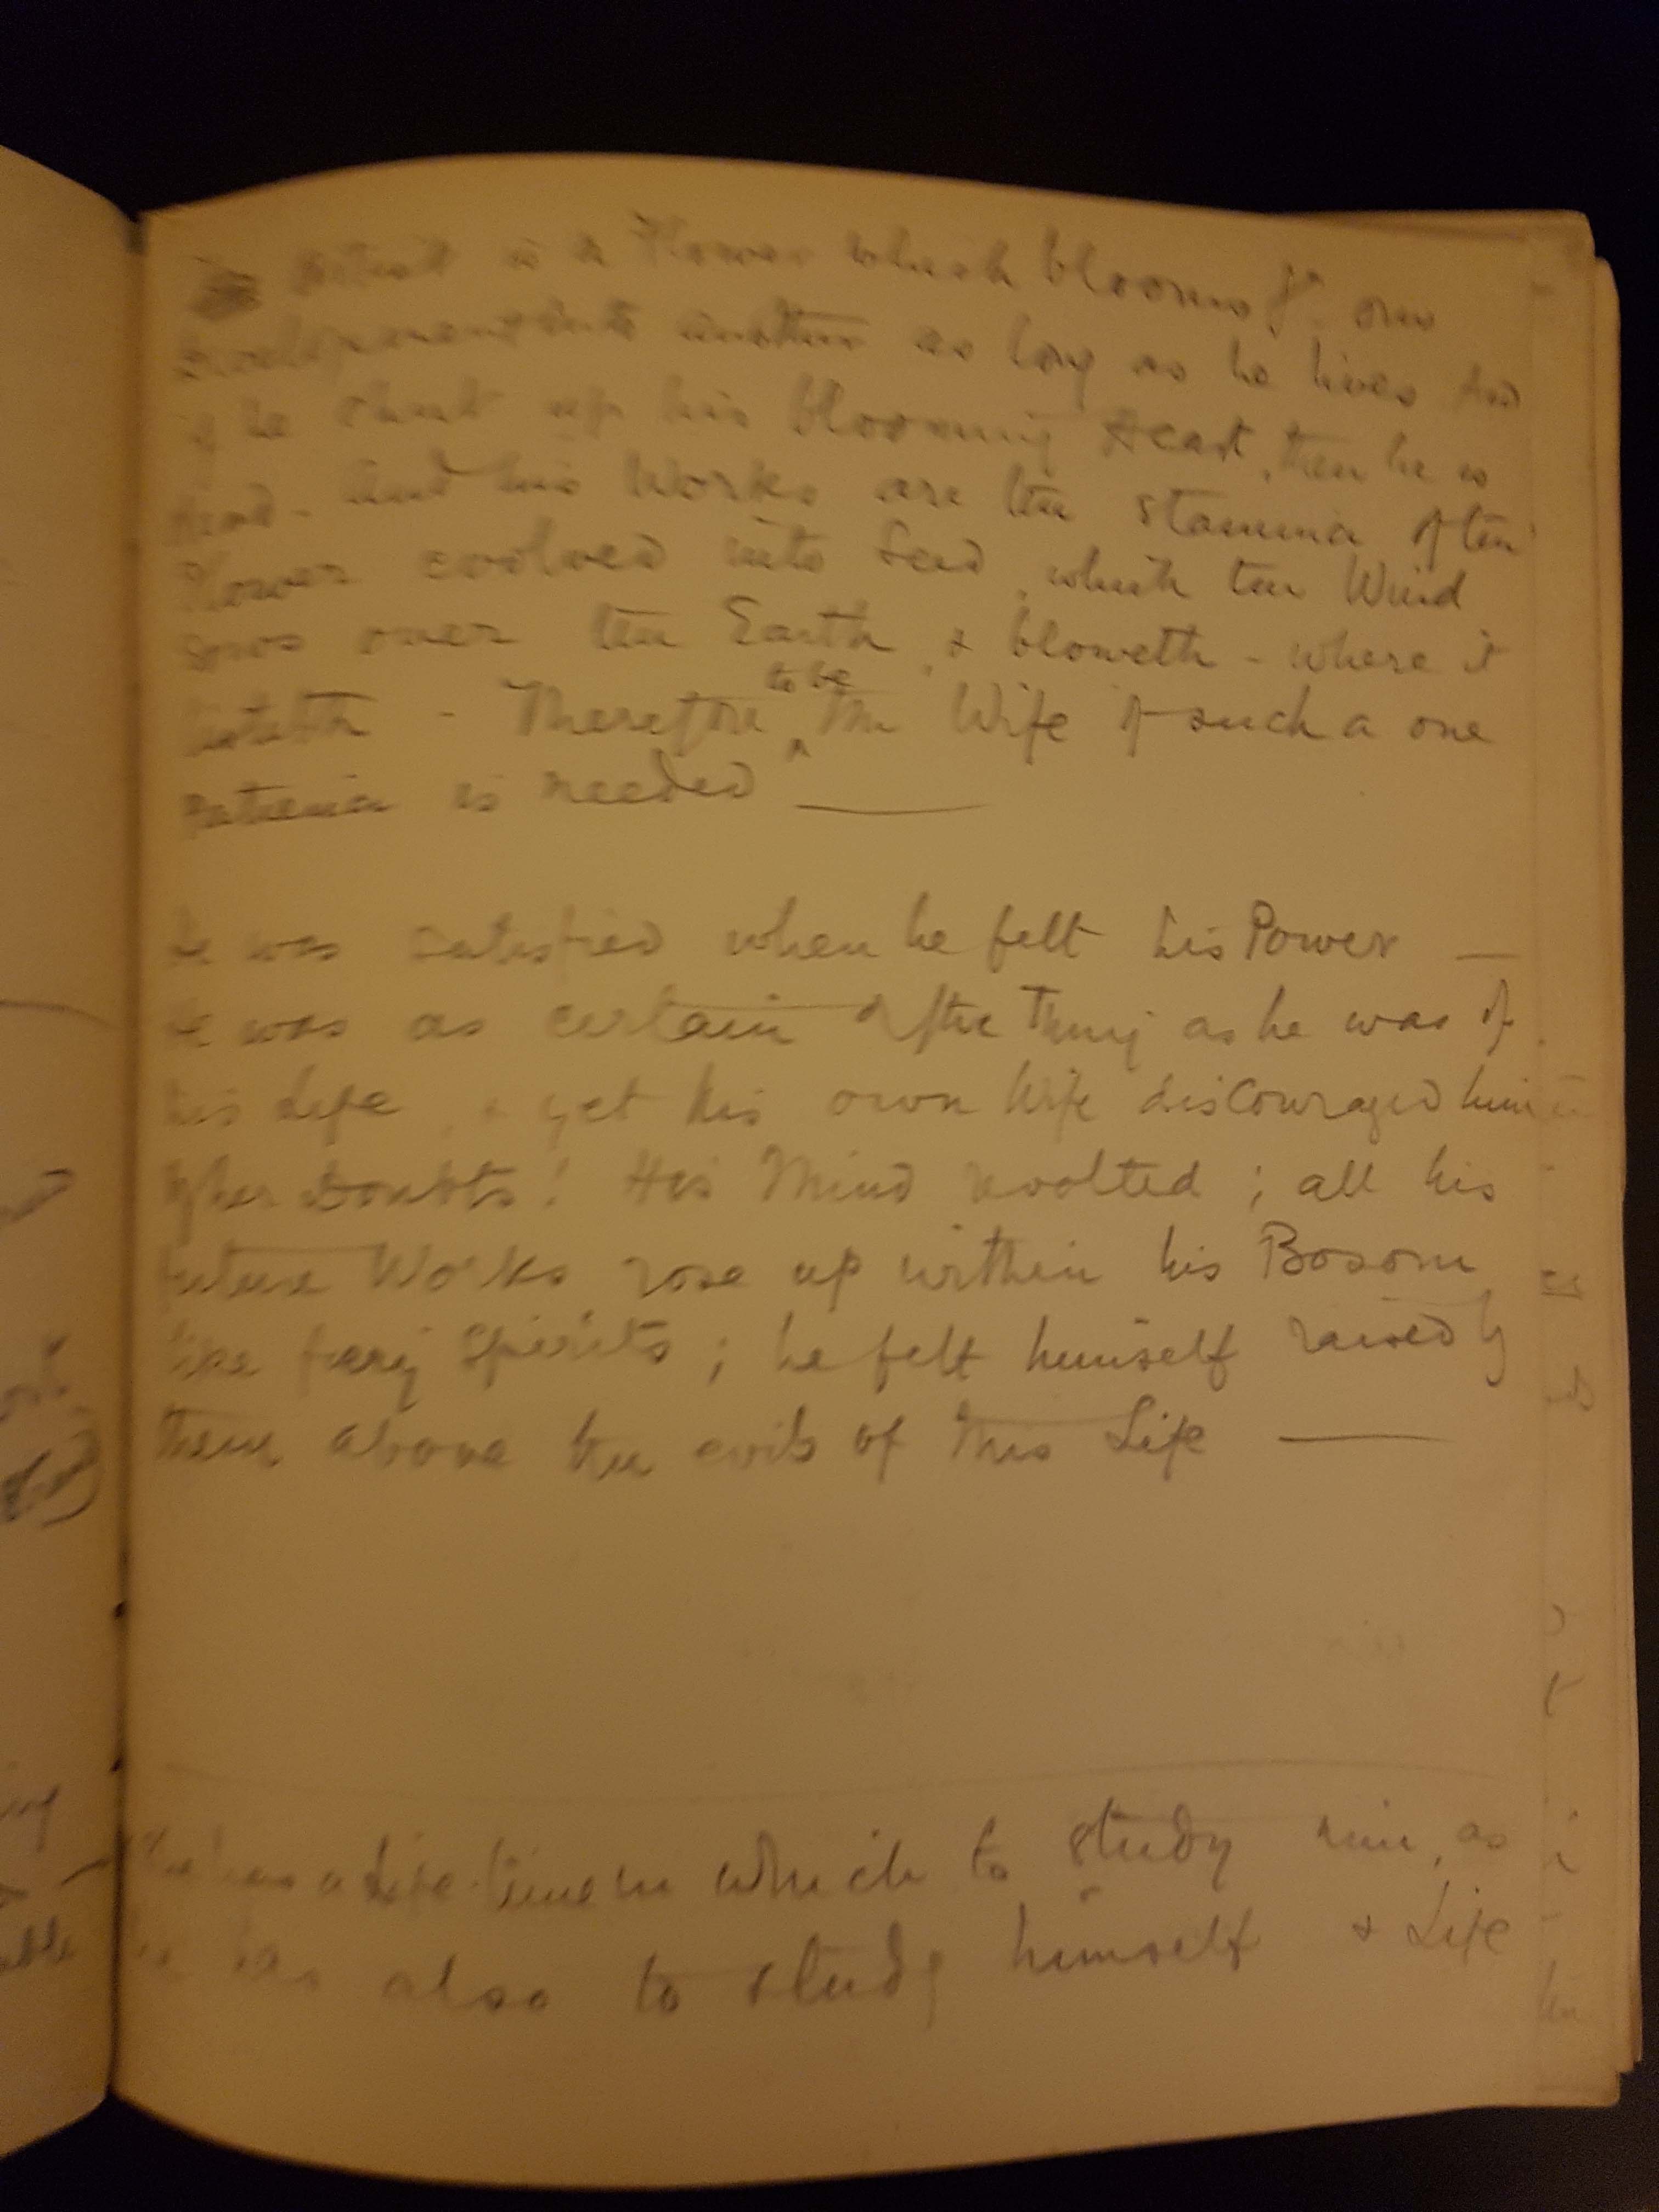 Artist is a Flower which blooms fr. one
Development into another as long as he lives And
if he shut up his blooming Heart, then he is
dead - And his Works are the stamina of the
Flower evolved into Seed, which the Wind
sows over the Earth, & bloweth - where it
listeth - Therefore to be the Wife of such a one
patience is needed
He was satisfied when he felt his Power —
He was as certain of the Thing as he was of
his Life, & yet his own Wife discouraged him
by her Doubts! His Mind revolted; all his
future Works rose up within his Bosom
like fiery Spirits; he felt himself raised by
them above the evils of this Life —
a Life-time in which to study him, as
he has also to study himself & Life